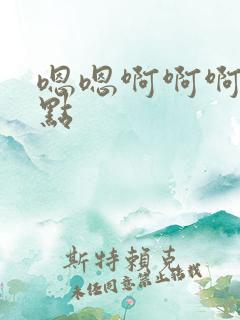 嗯嗯啊啊啊
點
斯特賴克
未經同意禁止轉載